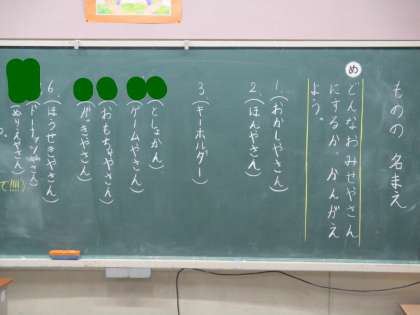 ものの 名まえ
め
どんなおみせやさん
にするか、かんがえ
よう。
1.(おかしやさん)
2.(ほんやさん)
3(キーホルダー)
(としょかん)
(ゲームやさん)
(おもちゃやさん)
(がっきやさん)
6.(ほうせきやさん)
(ドーナツやさん)
(めりえやさん)